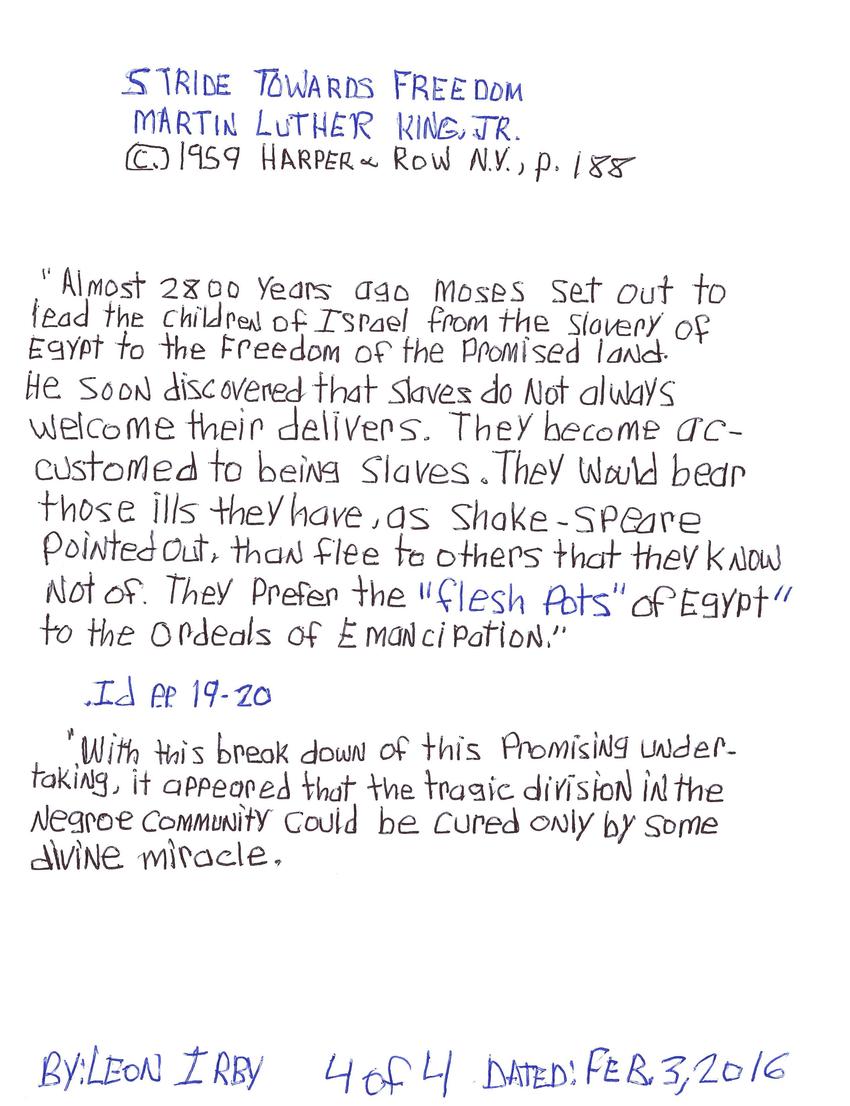 STRIDE TOWARDS FREEDOM
MARTIN LUTHER KING, JR.
(C.) 1959 HARPER & ROW N.Y., p. 188
"Almost 2800 years ago Moses set out to
lead the children of Israel from the slavery of
Egypt to the Freedom of the Promised land.
He soon discovered that slaves do Not always
welcome their delivers. They become ac-
customed to being slaves. They would bear
those ills they have, as Shake-speare
Pointed out, than flee to others that they know
Not of. They Prefer the "flesh Pots" of Egypt"
to the Ordeals of Emancipation."
.Id pp 19-20
"With this break down of this Promising under-
taking, it appeared that the tragic division in the
Negroe community could be cured only by some
divine miracle.
BY: LEON IRBY 4 of 4 DATED: FEB. 3, 2016